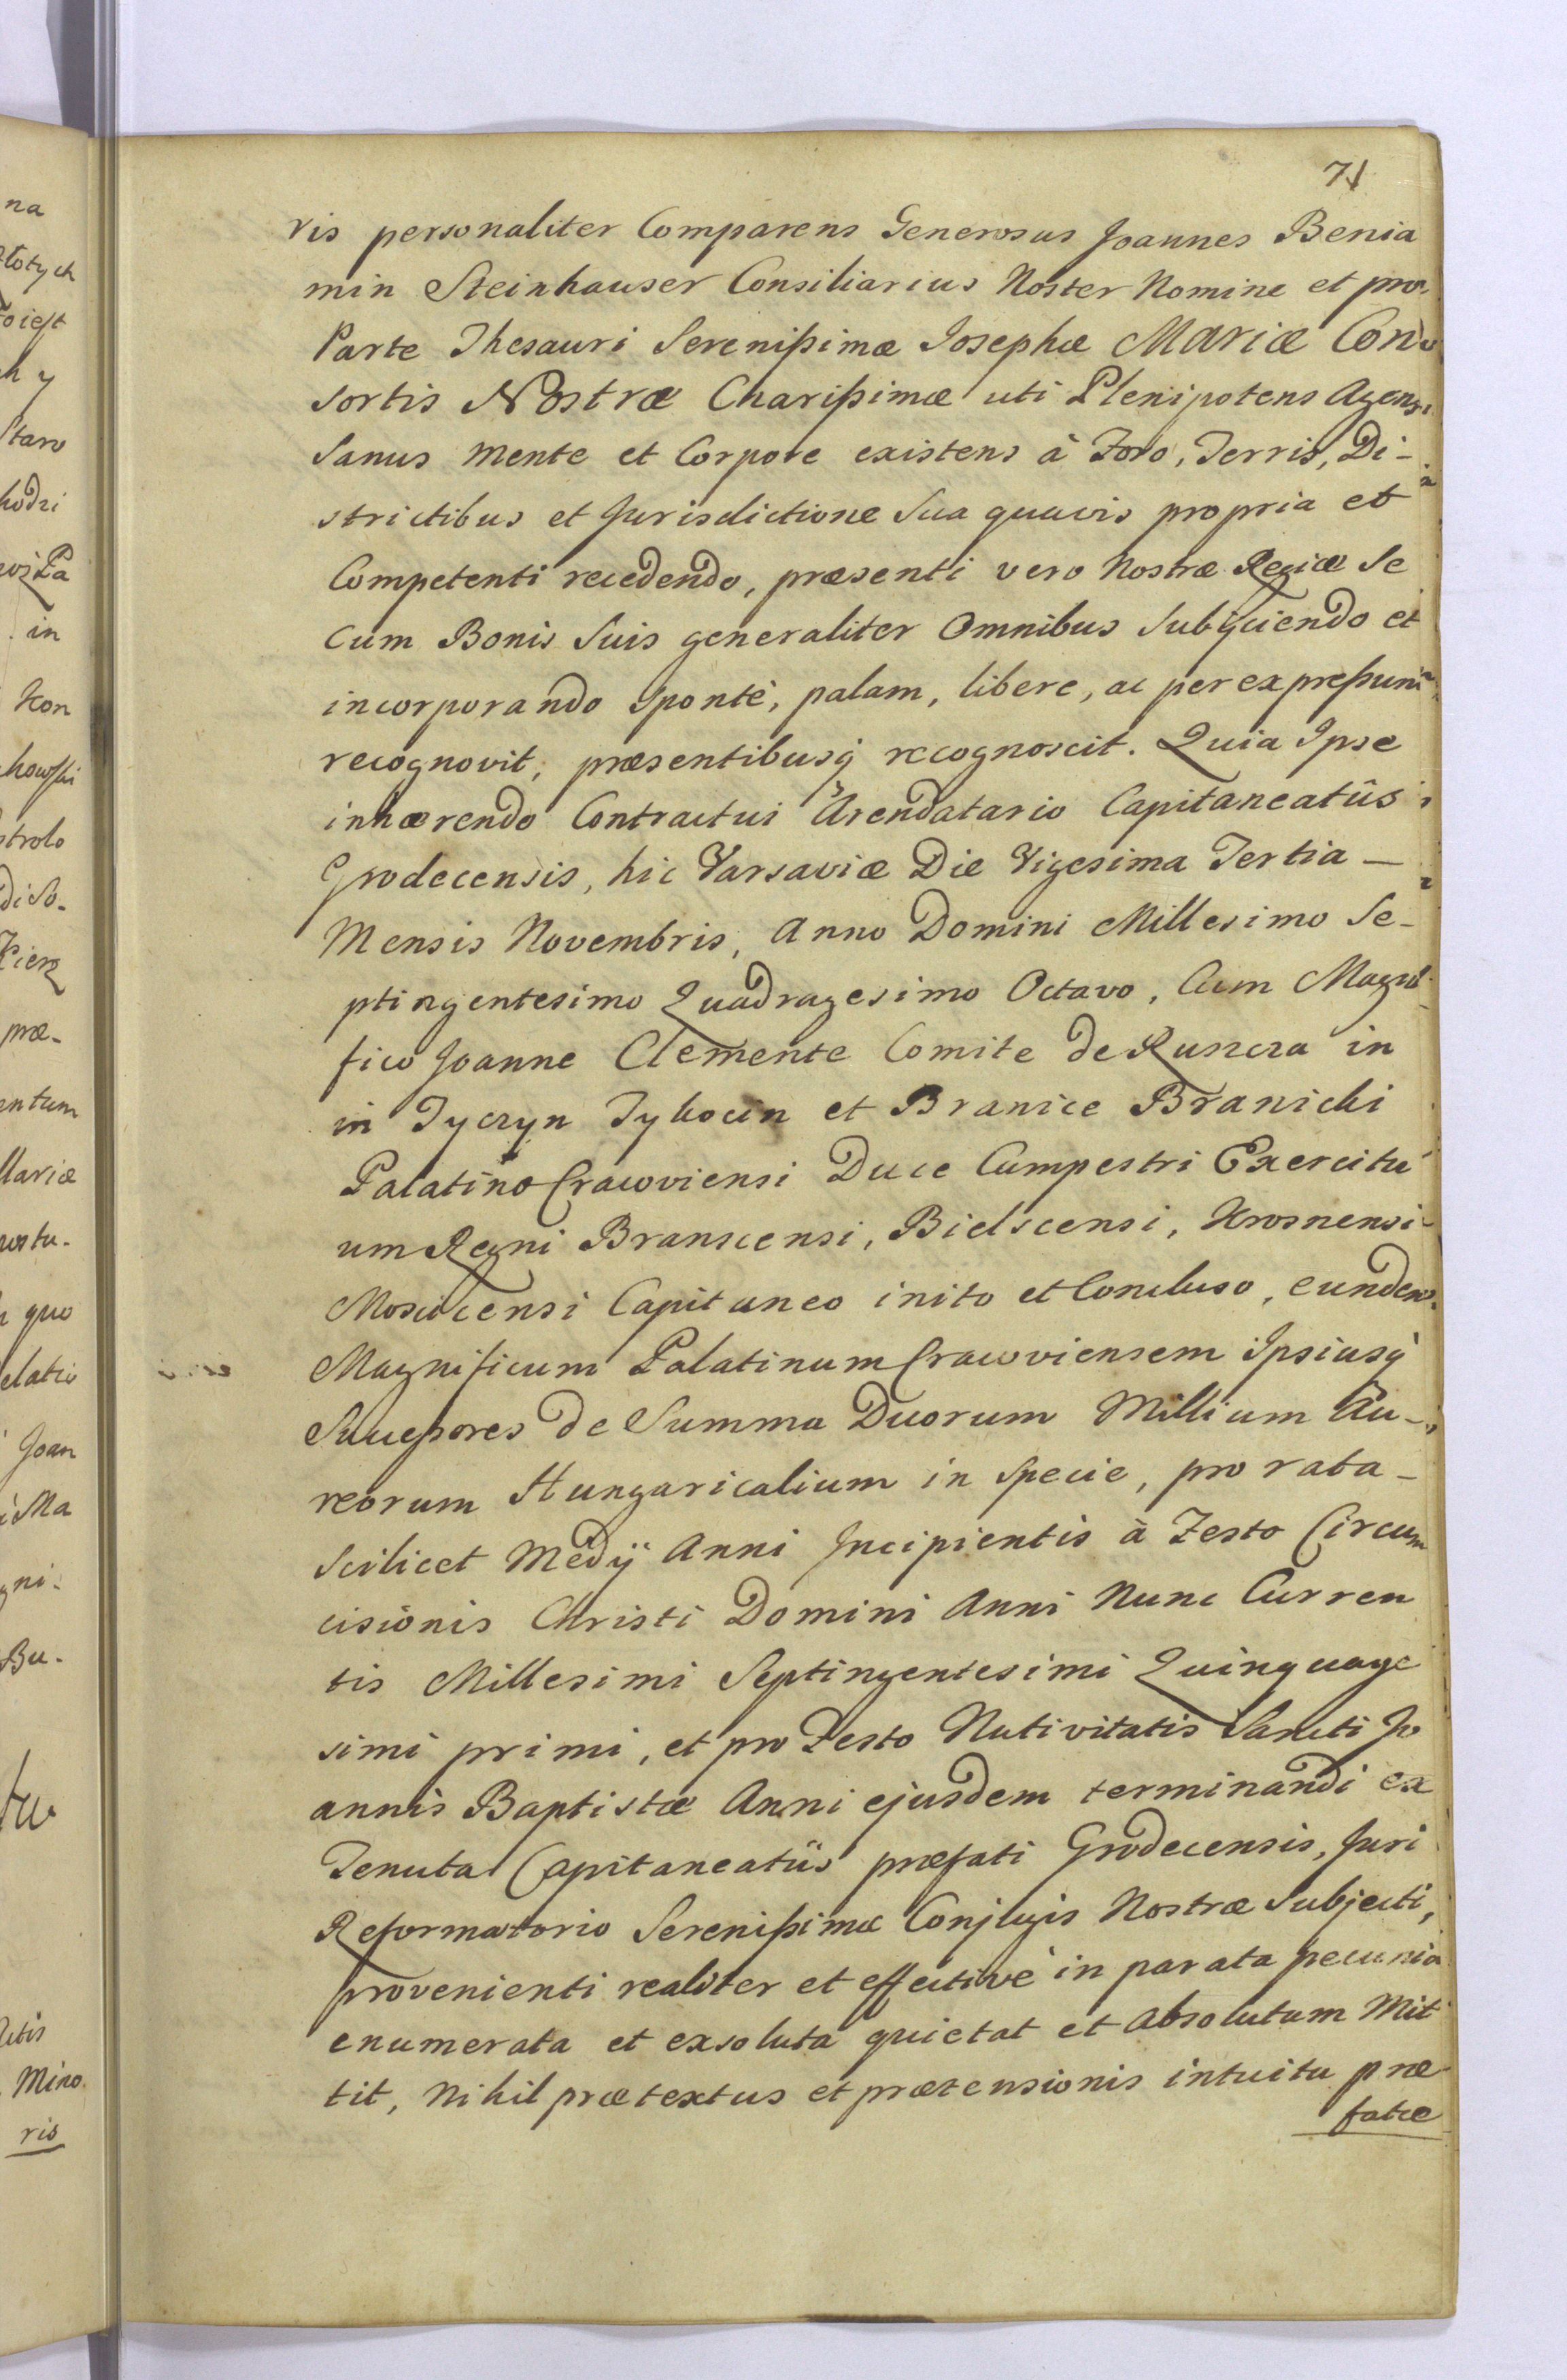 71
ris personaliter Comparens Generosus Joannes Benia
min Steinhauser Consiliarius Noster Nomine et pro
Parte Thesauri Serenißimæ Josephæ Mariæ Con
sortis Nostræ Charißimæ uti Plenipotens Agens
Sanus mente et Corpore existens à Foro, Terris, Di-
strictibus et Jurisdictione Sua quavis propria et
Competenti recedendo, præsenti vero Nostræ Regiæ Se
Cum Bonis Suis generaliter Omnibus Subijciendo et
incorporando sponté, palam, libere, ac per expreßum
recognovit, præsentibusq recognoscit. Quia Ipse
inhærendo Contractui Arendatario Capitaneatûs
Grodecensis, hic Varsaviæ Die Vigesima Tertia —
Mensis Novembris, Anno Domini Millesimo Se-
ptingentesimo Quadragesimo Octavo, Cum Magni
fico Joanne Clemente Comite de Ruszcza in
in Tyczyn Tykocin et Branice Branicki
Palatino Cracoviensi Duce Campestri Exercitu
um Regni Branscensi, Bielscensi, Krosnensi
Moscicensi Capitaneo inito et Concluso, eundem
Magnificum Palatinum Cracoviensem Ipsiusq
Succeßores de Summa Duorum Millium Au-
reorum Hungaricalium in Specie, pro rata -
Scilicet Medÿ Anni Incipientis à Festo Circum
cisionis Christi Domini Anni Nunc Curren
tis Millesimi Septingentesimi Quinquage
simi primi, et pro Festo Nativitatis Sancti Jo
annis Baptistæ Anni ejusdem terminandi ex
Tenuta Capitaneatûs præfati Grodecensis, Juri
Reformatorio Serenißimæ Conjugis Nostræ Subjecti,
provenienti realiter et effectivè in parata pecunia
enumerata et exsoluta quietat et absolutum Mit
tit, Nihil prætextus et prætensionis intuitu præ
fatæ